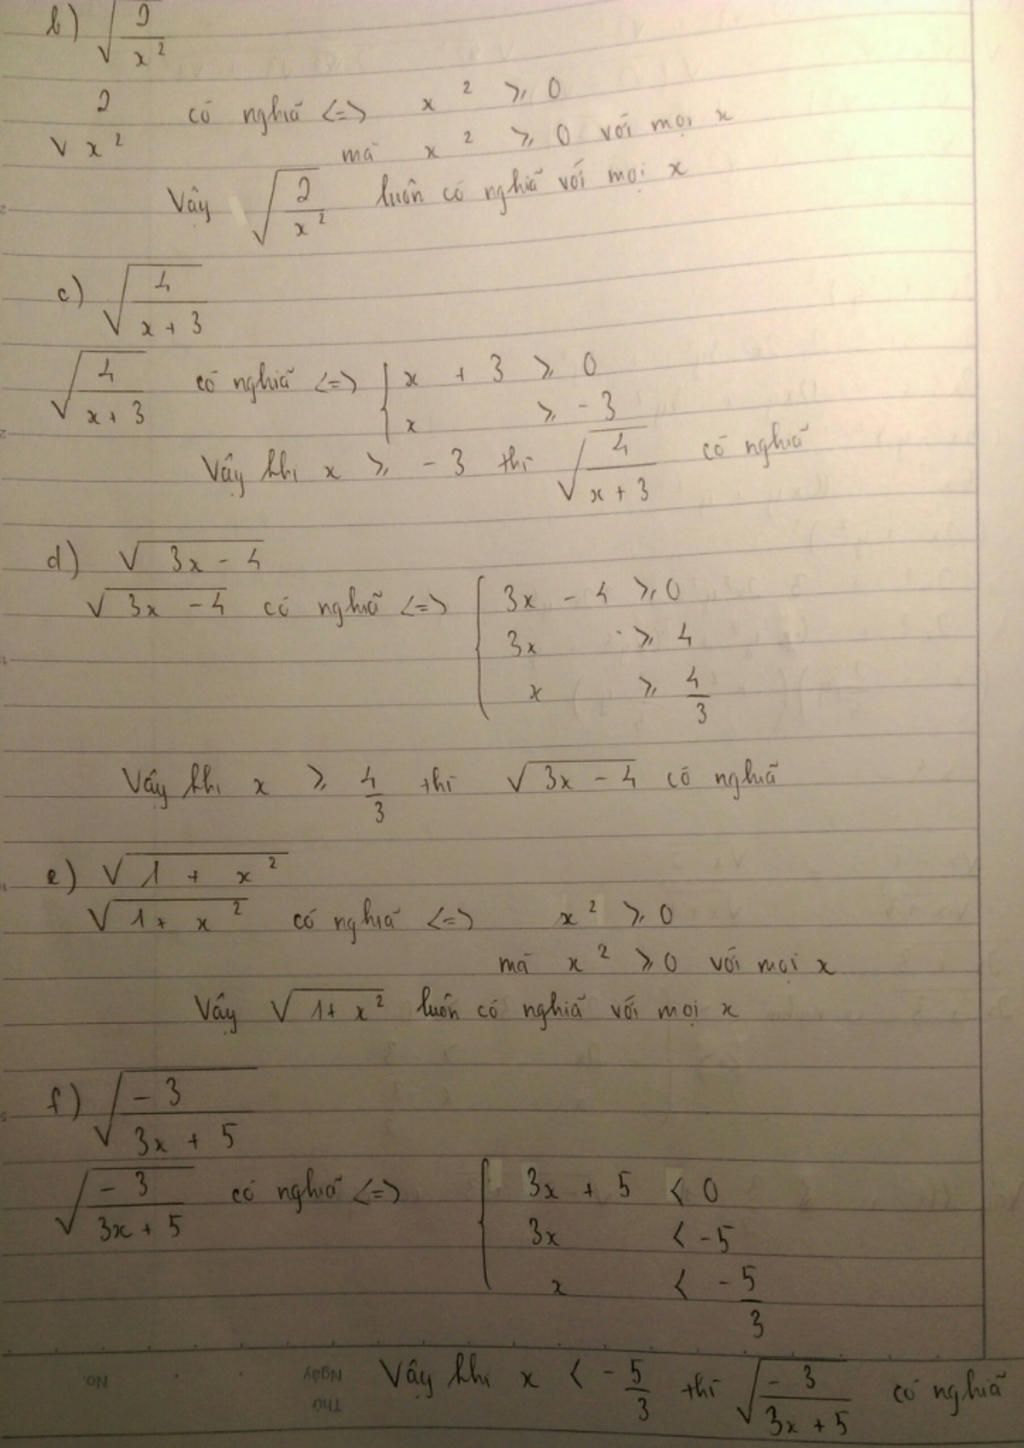 b) √(2/x²)
√(2/x²) có nghiã <=> x² ≥ 0
mà x² ≥ 0 với mọi x
Vậy √(2/x²) luôn có nghiã với mọi x
c) √(4/(x + 3))
√(4/(x + 3)) có nghiã <=> { x + 3 ≥ 0
x ≥ -3
Vậy khi x ≥ -3 thì √(4/(x + 3)) có nghiã
d) √(3x - 4)
√(3x - 4) có nghiã <=> { 3x - 4 ≥ 0
3x ≥ 4
x ≥ 4/3
Vậy khi x ≥ 4/3 thì √(3x - 4) có nghiã
e) √(1 + x²)
√(1 + x²) có nghiã <=> x² ≥ 0
mà x² ≥ 0 với mọi x
Vậy √(1 + x²) luôn có nghiã với mọi x
f) √(-3/(3x + 5))
√(-3/(3x + 5)) có nghiã <=> { 3x + 5 < 0
3x < -5
x < -5/3
Vậy khi x < -5/3 thì √(-3/(3x + 5)) có nghiã
No.
Ngày
Thứ